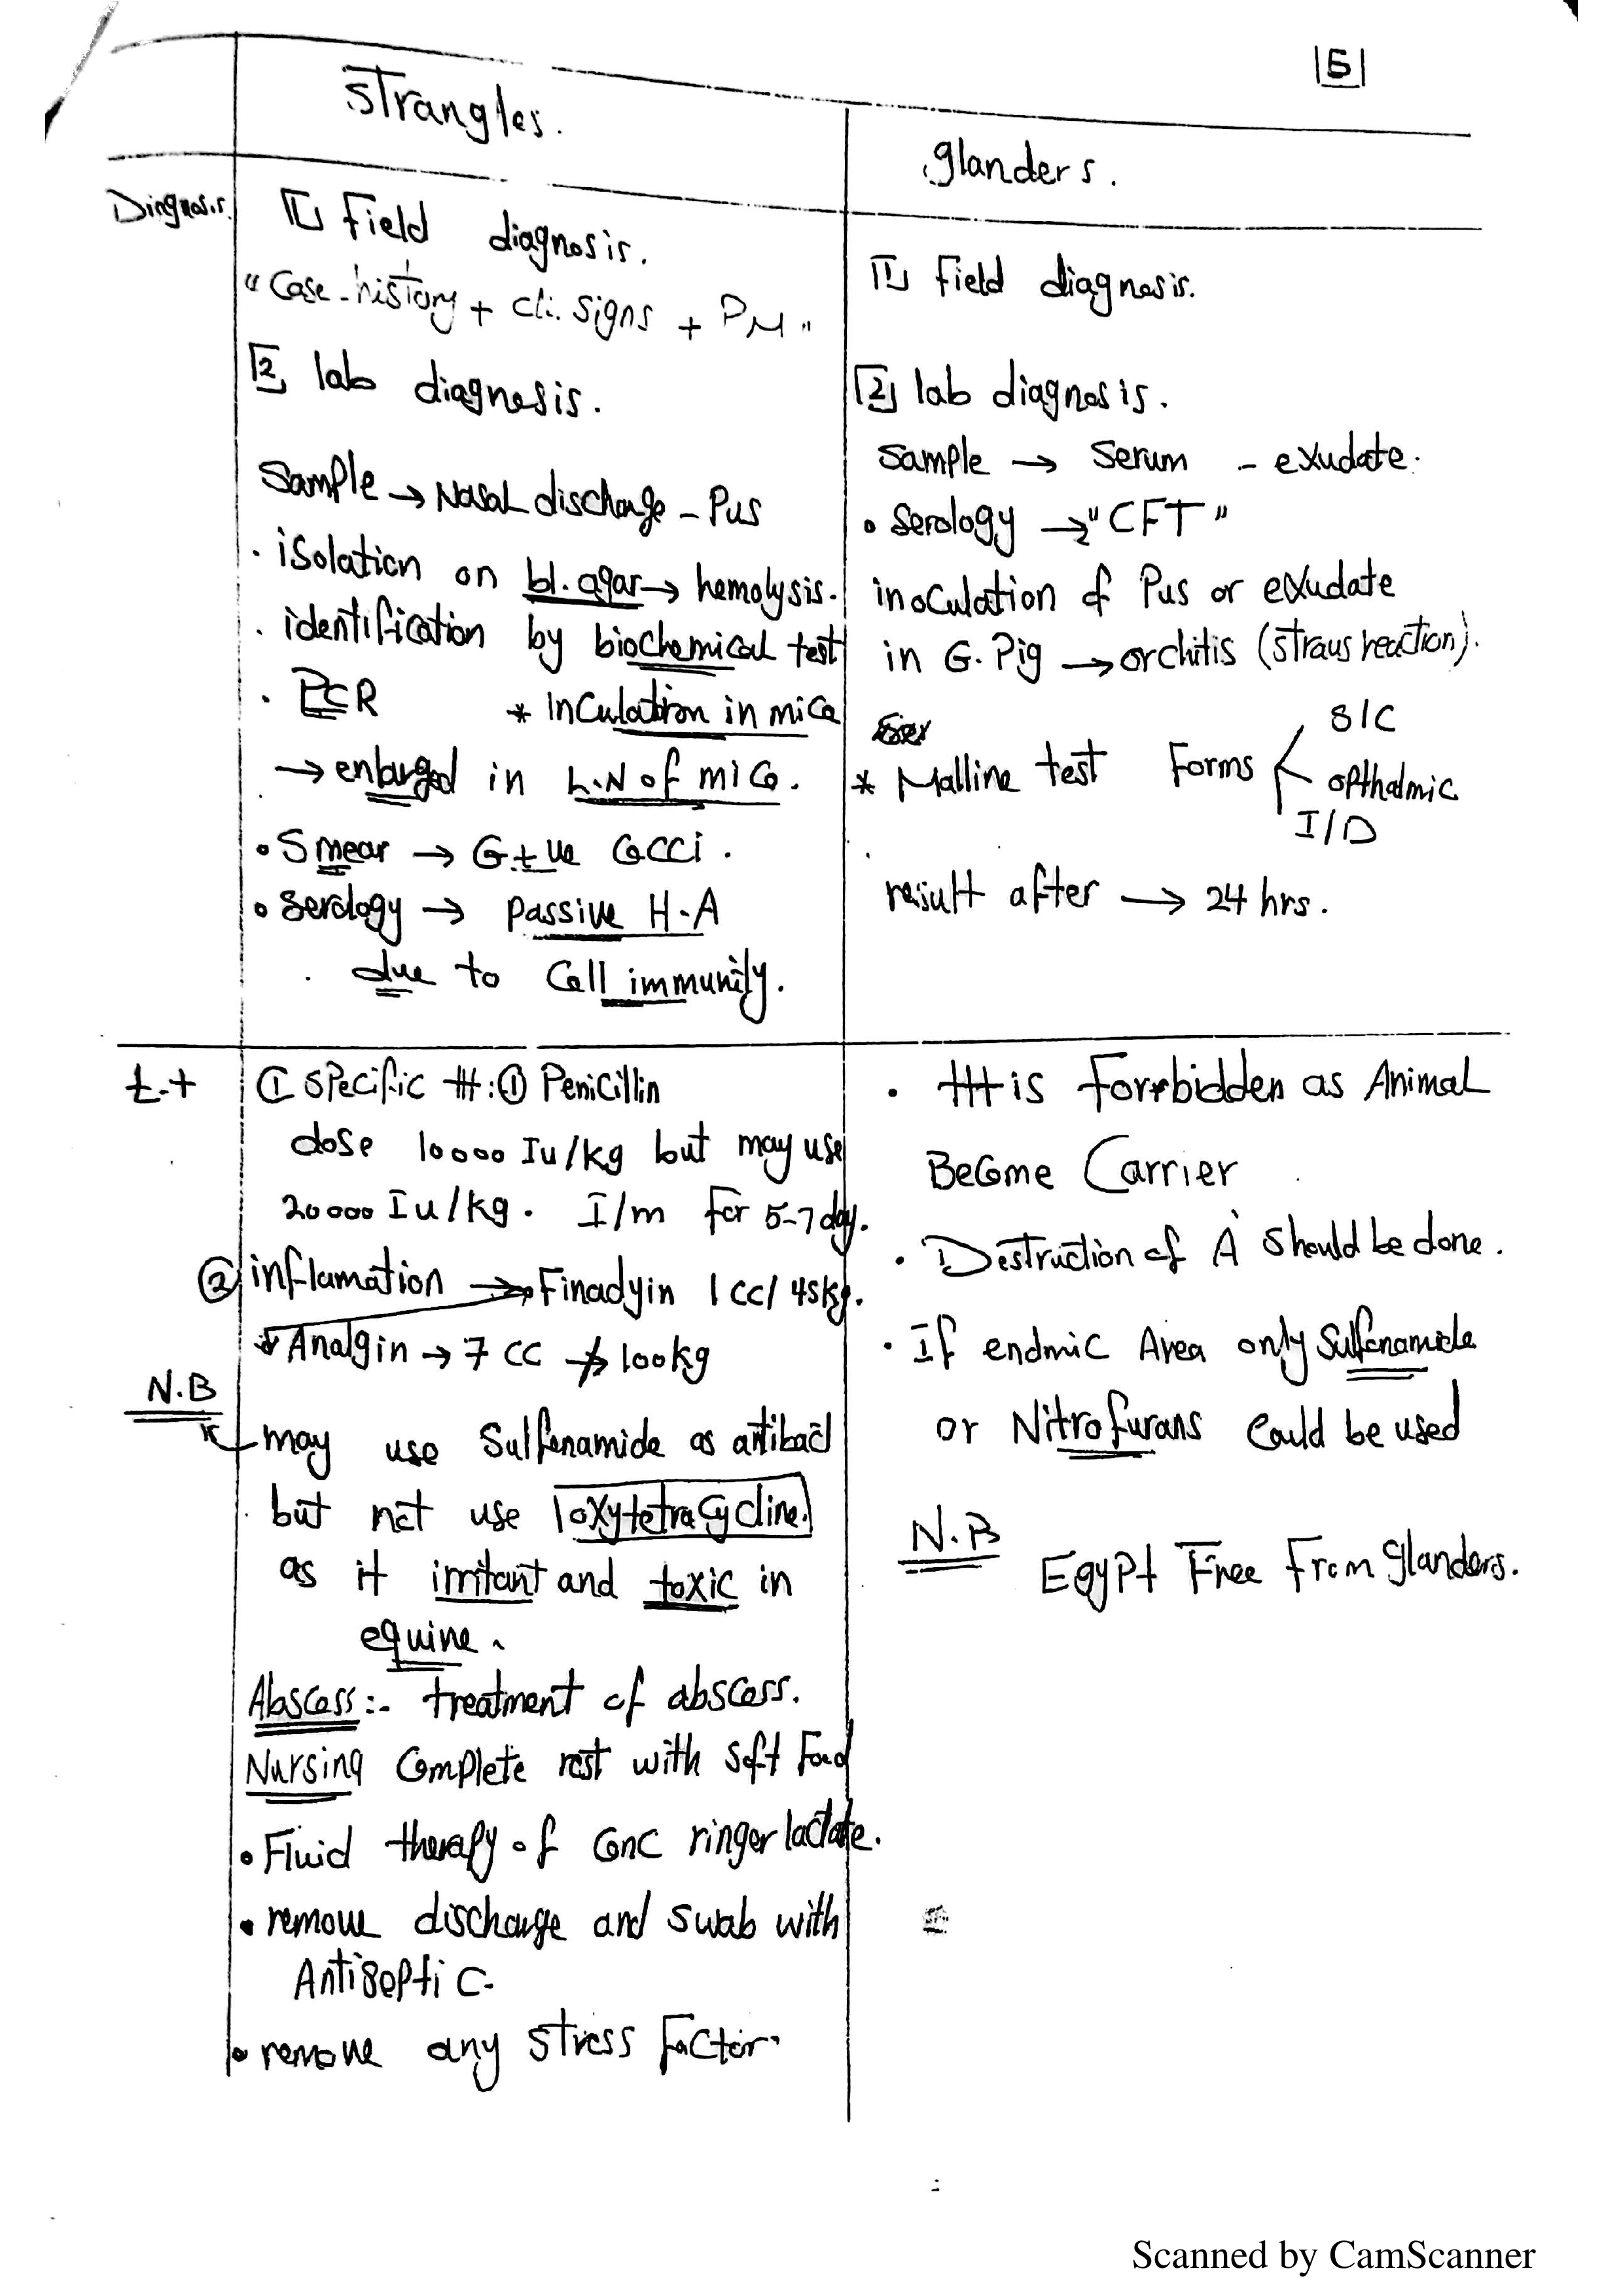 5
Strangles.
glanders.
Diagnosis.
1 field diagnosis.
"Case-history + cli. signs + PM"
2 lab diagnosis.
Sample → Nasal discharge - Pus
. isolation on bl. agar → hemolysis.
. identification by biochemical test
. PCR * inculation in mice
→ enlarged in L.N of mice.
• Smear → G+ve cocci.
• Serology → passive H.A
due to Cell immunity.
1 field diagnosis.
2 lab diagnosis.
Sample → Serum - exudate.
• Serology → "CFT"
inoculation of Pus or exudate
in G. Pig → orchitis (straus reaction).
* Malline test Forms S/C
opthalmic
I/D
result after → 24 hrs.
t.t
① specific ttt: ① Penicillin
dose 10000 Iu/kg but may use
20000 Iu/kg. I/m for 5-7 day.
② inflamation → Finadyin 1 cc/45kg.
Analgin → 7 cc → 100kg
N.B
may use Sulfonamide as antibact
but not use oxytetracycline.
as it irritant and toxic in
equine.
Abscess:- treatment of abscess.
Nursing Complete rest with soft food
• Fluid therapy of conc ringer lactate.
• remove discharge and swab with
Antiseptic.
• remove any stress factor.
. ttt is Forrbidden as Animal
Become Carrier
. Destruction of A should be done.
. If endmic Area only Sulfonamide
or Nitrofurans could be used
N.B
Egypt Free From glanders.
Scanned by CamScanner